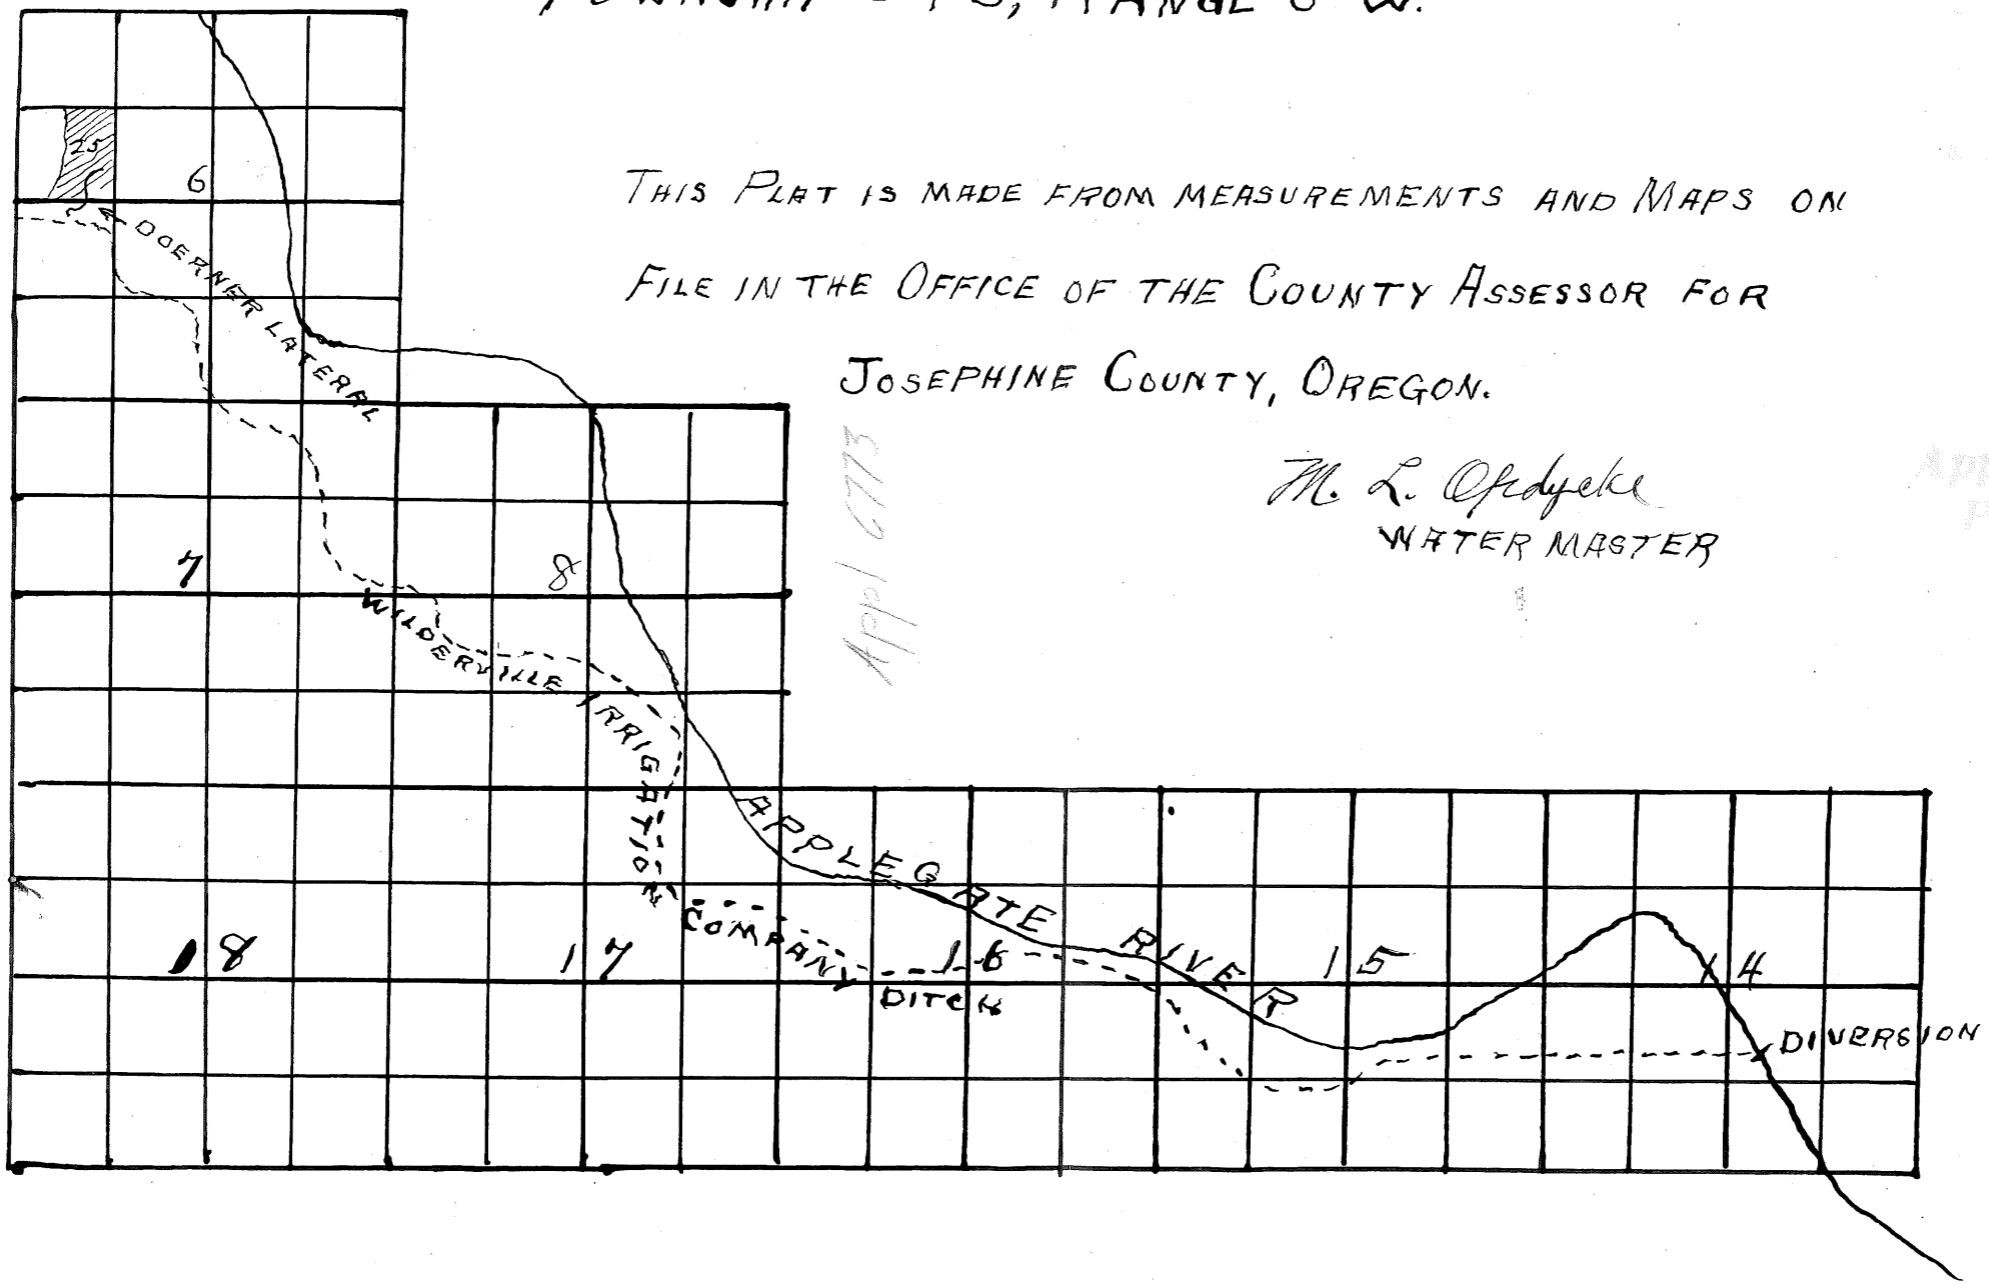 RANGE 6 W.
THIS PLAT IS MADE FROM MEASUREMENTS AND MAPS ON
FILE IN THE OFFICE OF THE COUNTY ASSESSOR FOR
JOSEPHINE COUNTY, OREGON.
M. L. Opdycke
WATER MASTER
Appl 6773
25
6
DOERNER LATERAL
7
8
WILDERVILLE IRRIGATION COMPANY DITCH
APPLEGATE RIVER
18
17
16
15
14
DIVERSION